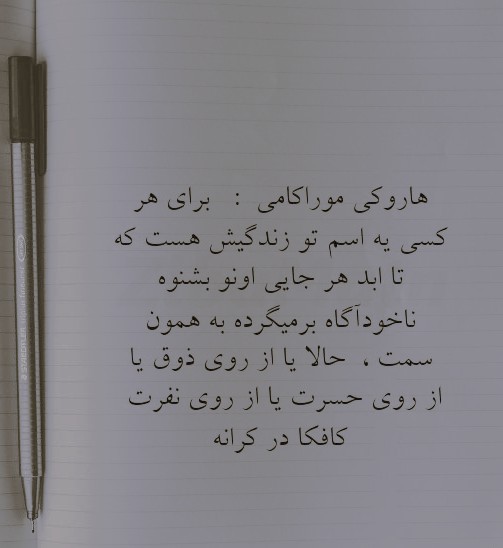 هاروکی موراکامی : برای هر
کسی یه اسم تو زندگیش هست که
تا ابد هر جایی اونو بشنوه
ناخودآگاه برمیگرده به همون
سمت ، حالا یا از روی ذوق یا
از روی حسرت یا از روی نفرت
کافکا در کرانه
STAEDTLER